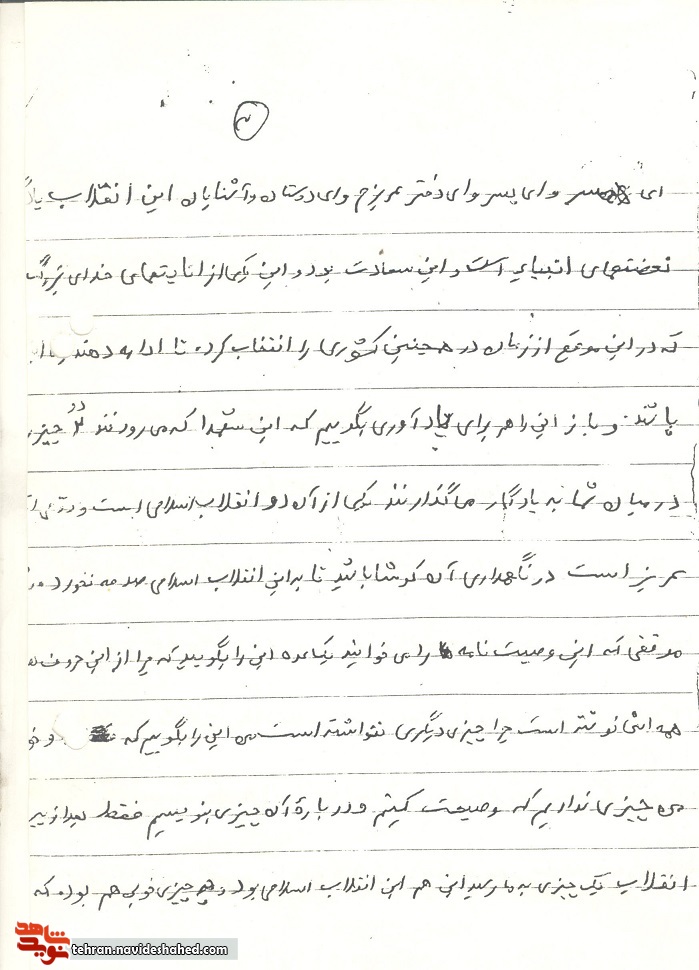 ۲
ای همسر و ای پسر و ای دختر عزیزم و ای دوستان و آشنایان این انقلاب
نهضتهای انبیای است و این سعادت بود و این یکی از عنایتهای خدای بزرگ
که در این موقع از زمان در همچنین کشوری را انتخاب کرد تا ادامه دهنده
باشند و باز این را هم برای یادآوری بگوییم که این شهدا که می روند دو چیز
در میان شما به یادگار می گذارنند یکی از آن دو انقلاب اسلامی است و
عزیز است در نگهداری آن کوشا باشید تا به این انقلاب اسلامی صدمه نخورد
موقعی که این وصیت نامه را می خوانید یک عده این را بگویید که چرا از این حروف
همه اش نوشته است چرا چیزی دیگری ننوشته است من این را بگوییم که و
من چیزی نداریم که وصیت کنیم و درباره آن چیزی بنویسیم فقط بعد از
انقلاب یک چیزی به ما رسید این هم این انقلاب اسلامی بود و چیزی خوبی هم بوده که
شاهد
نوید
tehran.navideshahed.com